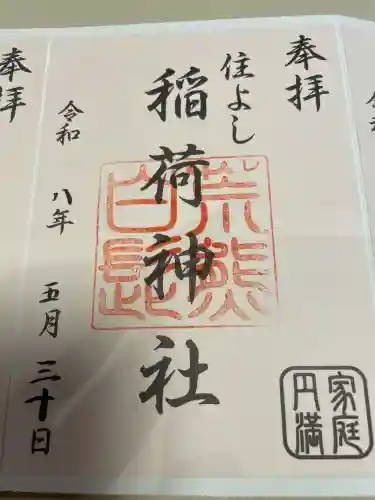 奉拝
住よし
稲荷神社
荒熊
白髭
家庭
円満
令和 八年 五月 三十日
奉拝
令和